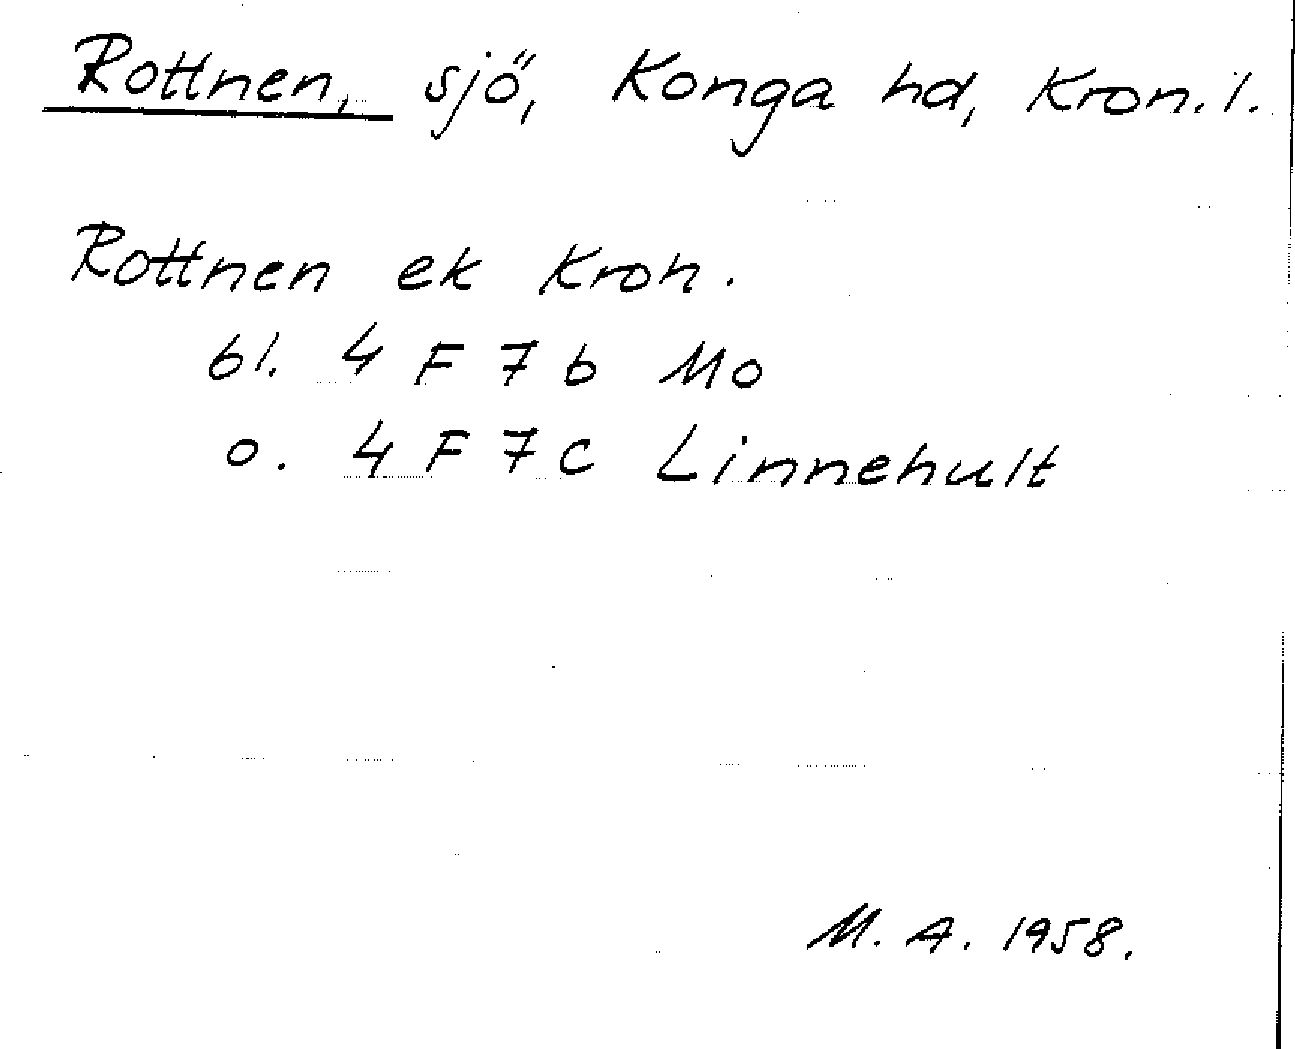 Rottnen, sjö, Konga hd, Kron. l.
Rottnen ek Kron.
bl. 4 F 7 b Mo
o. 4 F 7 c Linnehult
M. A. 1958.